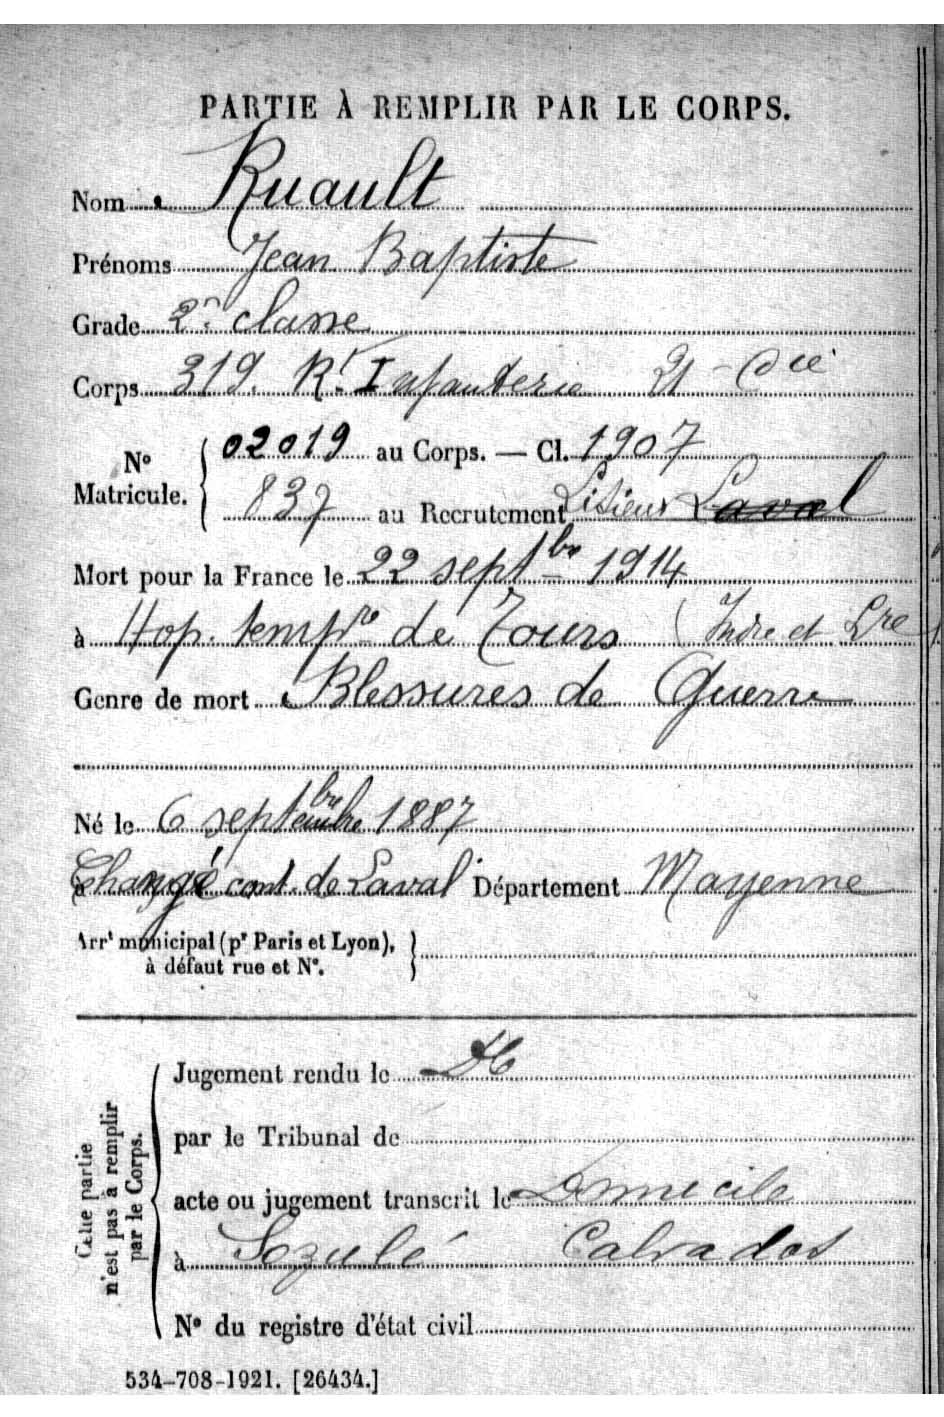 PARTIE À REMPLIR PAR LE CORPS.
Nom Ruault
Prénoms Jean Baptiste
Grade 2e classe
Corps 319. Rt Infanterie 21 - Cie
No Matricule. { 02019 au Corps. — Cl. 1907
837 au Recrutement Lisieux Laval
Mort pour la France le 22 septbre 1914
à Hop. tempre de Tours (Indre et Lre
Genre de mort Blessures de Guerre
Né le 6 septembre 1887
à Changé cant. de Laval Département Mayenne
Arrt municipal (pr Paris et Lyon), à défaut rue et No. }
Cette partie n'est pas à remplir par le Corps.
Jugement rendu le
par le Tribunal de
acte ou jugement transcrit le Domicile
à Dozulé Calvados
No du registre d'état civil
534-708-1921. [26434.]